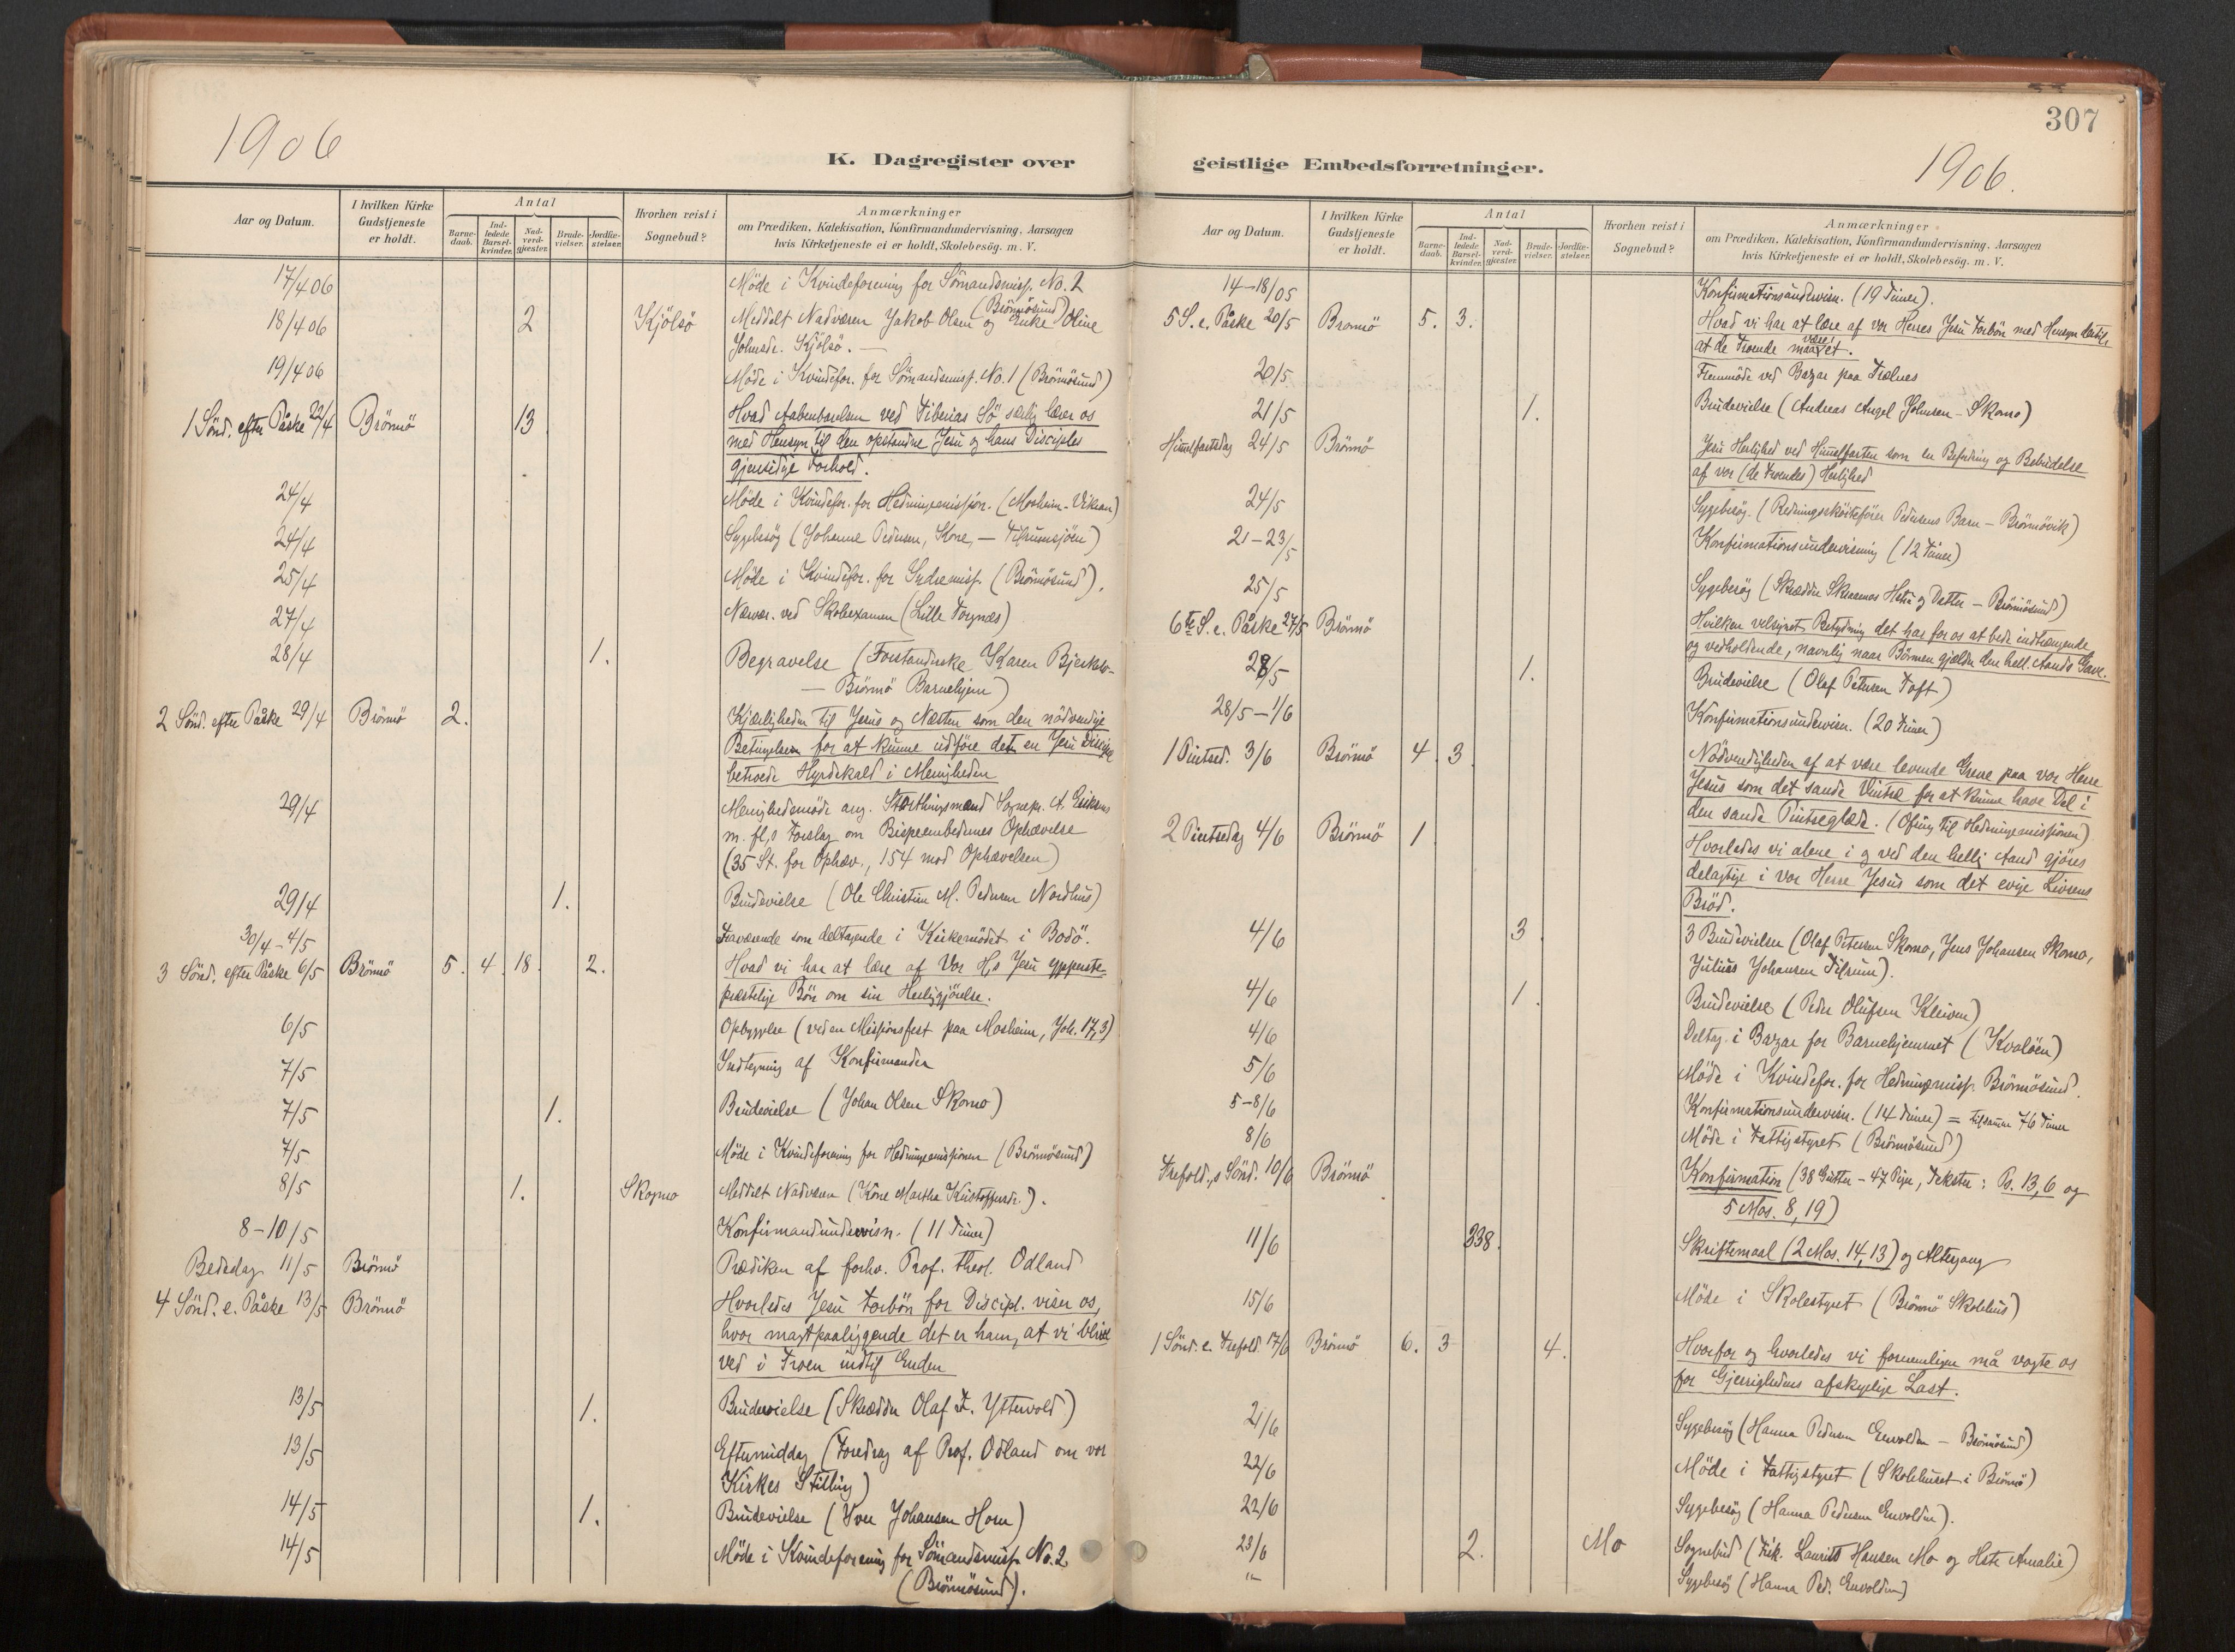 1906
K. Dagregister over
Aar og Datum.
I hvilken Kirke Gudstjeneste er holdt.
Antal
Barne-daab.
Ind-ledede Barsel-kvinder.
Nad-verd-gjester.
Brude-vielser.
Jordfæ-stelser.
Hvorhen reist i Sognebud?
Anmærkninger
om Prædiken, Katekisation, Konfirmandundervisning. Aarsagen
hvis Kirketjeneste ei er holdt, Skolebesøg. m. V.
17/4 06 Möde i Kvindeforening for Sömandsmisj. No. 2
(Brönnösund)
18/4 06 2 Kjölsö Meddelt Nadveren Jakob Olsen og Enke Oline
Johnsdr. Kjölsö. —
19/4 06 Möde i Kvindefor. for Sömandsmisj. No. 1 (Brönnösund)
1 Sönd. efter Påske 22/4 Brönnö 13 Hvad Aabenbarelsen ved Tiberias Sö særlig lærer os
med Hensyn til den opstandne Jesu og hans Disciples
gjensidige Forhold.
24/4 Möde i Kvindefor. for Hedningemissjon. (Mosheim - Vikran)
24/4 Sygebesög (Johanne Pedersen, Kone, — Tilrumsjöen)
25/4 Möde i Kvindefor. for Indremisj. (Brönnösund).
27/4 Nærvær. ved Skoleexamen (Lille Torgnæs)
28/4 1. Begravelse (Forstanderske Karen
— Brönnö Barnehjem)
2 Sönd. efter Påske 29/4 Brönnö 2. Kjærligheden til Jesus og Næsten som den nödvendige
Betingelsen for at kunne udföre det en Jesu Discipel
betroede Hyrdekald i Menigheden
29/4 Menighedsmöde ang. Storthingsmand Sognepr. A. Eriksens
m. fl,s Forslag om Bispeembedernes Ophævelse
(35 St. for Ophæv., 154 mod Ophævelsen)
29/4 1. Brudevielse (Ole Christian M. Pedersen Nordhus)
30/4 - 4/5 Fraværende som deltagende i Kirkemödet i Bodö.
3 Sönd. efter Påske 6/5 Brönnö 5. 4. 18. 2. Hvad vi har at lære af Vor H,s Jesu ypperste-
præstelige Bön om sin Herliggjörelse.
6/5 Opbyggelse (ved en Missjonsfest paa Mosheim, Joh. 17,3)
7/5 Indtegning af Konfirmander
7/5 1. Brudevielse (Johan Olsen Skomo)
7/5 Möde i Kvindeforening for Hedningemissjonen (Brönnösund)
8/5 1. Skogmo Meddelt Nadveren (Kone Martha Kristoffersdr.).
8-10/5 Konfirmandundervisn. (11 Timer)
Bededag 11/5 Brönnö Prædiken af forhv. Prof. theol. Odland
4 Sönd. e. Påske 13/5 Brönnö Hvorledes Jesu Forbön for Discipl. viser os,
hvor magtpaaliggende det er ham, at vi bliver
ved i Troen indtil Enden
13/5 1. Brudevielse (Skrædder Olaf T. Yttervold)
13/5 Eftermiddag (Foredrag af Prof. Odland om vor
Kirkes Stilling)
14/5 1. Brudevielse (Iver Johansen Horn)
14/5 Möde i Kvindeforening for Sömandsmisj. No. 2
(Brönnösund).
307
geistlige Embedsforretninger.
1906.
Aar og Datum.
I hvilken Kirke Gudstjeneste er holdt.
Antal
Barne-daab.
Ind-ledede Barsel-kvinder.
Nad-verd-gjester.
Brude-vielser.
Jordfæ-stelser.
Hvorhen reist i Sognebud?
Anmærkninger
om Prædiken, Katekisation, Konfirmandundervisning. Aarsagen
hvis Kirketjeneste ei er holdt, Skolebesøg. m. V.
14-18/05 Konfirmationsundervisn. (19 Timer).
5 S. e. Påske 20/5 Brönnö 5. 3. Hvad vi har at lære af vor Herres Jesu Forbön med Hensyn dertil,
at de Troende maa være et.
20/5 Fremmöde ved Bazar paa Trælnes
21/5 1. Brudevielse (Andreas Angel Johnsen - Skomo)
Himmelfartsdag 24/5 Brönnö Jesu Herlighed ved Himmelfarten som en Befæstning og Bebudelse
af vor (de Troendes) Herlighed
24/5 Sygebesög. (Redningssköitefører Pedersens Barn - Brönnövik)
21-23/5 Konfirmationsundervisning (12 Timer)
25/5 Sygebesög (Skrædder Hstru og Datter - Brönnösund)
6te S. e. Påske 27/5 Brönnö Hvilken velsignet Betydning det har for os at bede indtrængende
og vedholdende, navnlig naar Bönnen gjælder den hell. Aands Gave.
28/5 1. Brudevielse (Olaf Petersen Toft)
28/5 - 1/6 Konfirmationsundervisn. (20 Timer)
1 Pintsed. 3/6 Brönnö 4. 3. Nödvendigheden af at være levende Grene paa vor Herre
Jesus som det sande Vintræ for at kunne have Del i
den sande Pintseglæde. (Ofring til Hedningemissjonen)
2 Pintsedag 4/6 Brönnö 1 Hvorledes vi alene i og ved den hellig Aand gjöres
delagtige i vor Herre Jesus som det evige Livsens
Bröd.
4/6 3. 3 Brudevielser (Olaf Petersen Skomo, Jens Johansen Skomo,
Julius Johansen Tilrum).
4/6 1. Brudevielse (Peder Olufsen Kleiven)
4/6 Deltag. i Bazar for Barnehjemmet (Kvalöen)
5/6 Möde i Kvindefor. for Hedningmisj. Brönnösund.
5-8/6 Konfirmationsundervisn. (14 Timer) = tilsammen 76 Timer
8/6 Möde i Fattigstyret (Brönnösund)
Trefold.,s Sönd. 10/6 Brönnö Konfirmation (38 Gutter - 47 Piger, Tekster: Ps. 13,6 og
5 Mos. 8,19)
11/6 338. Skriftemaal (2 Mos. 14,13) og Altergang
15/6 Möde i Skolestyret (Brönnö Skolehus)
1 Sönd. e. Trefold. 17/6 Brönnö 6. 3 4. Hvorfor og hvorledes vi fornemligen må vogte os
for Gjerrighedens afskyelige Last.
21/6 Sygebesög (Hanna Pedersen Envolden - Brönnösund)
22/6 Möde i Fattigstyret (Skolehuset i Brönnö)
22/6 Sygebesög (Hanna Pedersen Envolden).
23/6 2. Mo Sognebud (Fisk. Laurits Hansen Mo og Hstr Amalie)
" Sygebesög (Hanna Ped. Envolden)